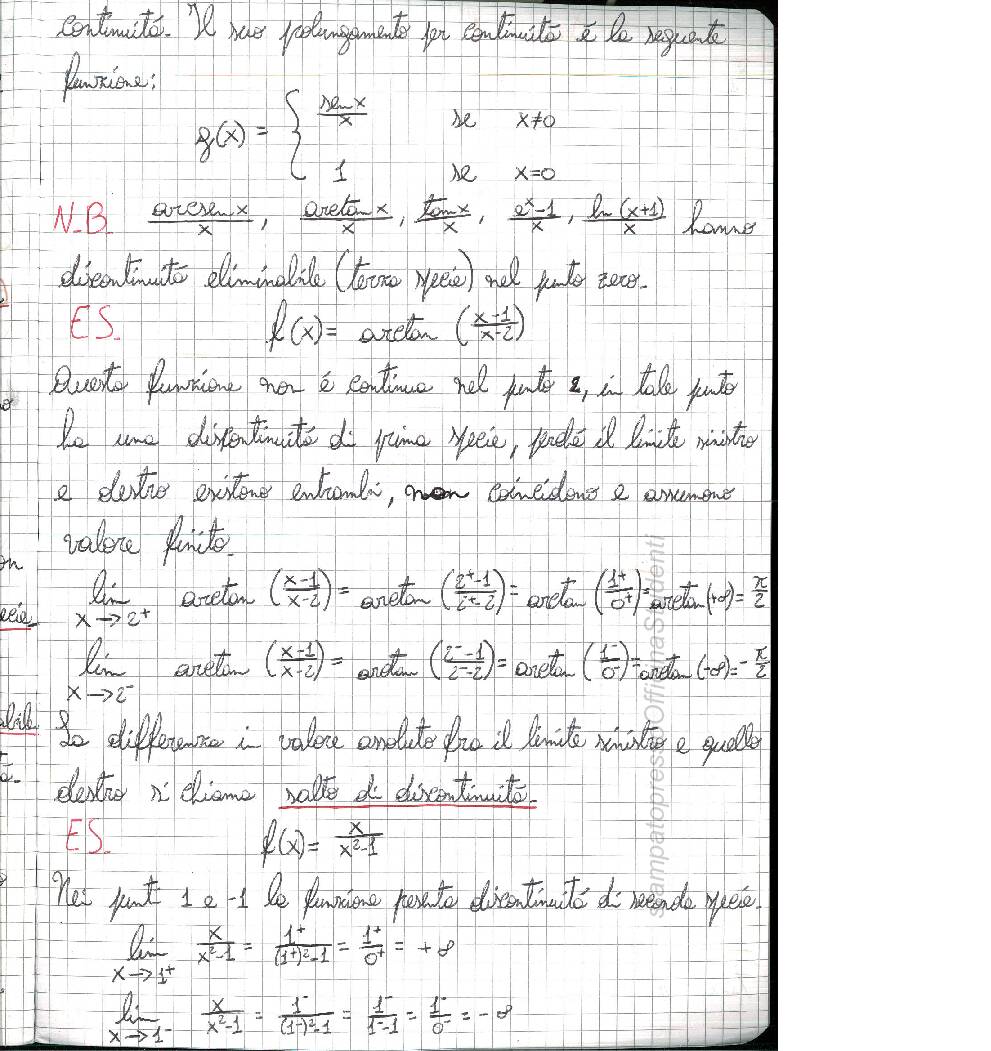 continuitá. Il suo polungamento per continuitá é la seguente
funzione:
g(x) = { sen x / x se x≠0
1 se x=0
N.B. arcsen x / x, arctan x / x, tan x / x, e^x-1 / x, ln(x+1) / x hanno
discontinuitá eliminabile (terza specie) nel punto zero.
ES. f(x)= arctan (x-1 / x-2)
Questa funzione non é continua nel punto 2, in tale punto
ha una discontinuitá di prima specie, perché il limite sinistro
e destro esistono entrambi, non coincidono e assumono
valore finito.
lim x→2⁺ arctan (x-1 / x-2) = arctan (2⁺-1 / 2⁺-2) = arctan (1⁺ / 0⁺) = arctan (+∞) = π/2
lim x→2⁻ arctan (x-1 / x-2) = arctan (2⁻-1 / 2⁻-2) = arctan (1⁻ / 0⁻) = arctan (-∞) = -π/2
La differenza in valore assoluto fra il limite sinistro e quello
destro si chiama salto di discontinuitá.
ES. f(x)= x / x²-1
Nei punti 1 e -1 la funzione presenta discontinuitá di seconda specie.
lim x→1⁺ x / x²-1 = 1⁺ / (1⁺)²-1 = 1⁺ / 0⁺ = +∞
lim x→1⁻ x / x²-1 = 1⁻ / (1⁻)²-1 = 1⁻ / 1⁻-1 = 1⁻ / 0⁻ = -∞
stampatopressoOfficinaStudenti